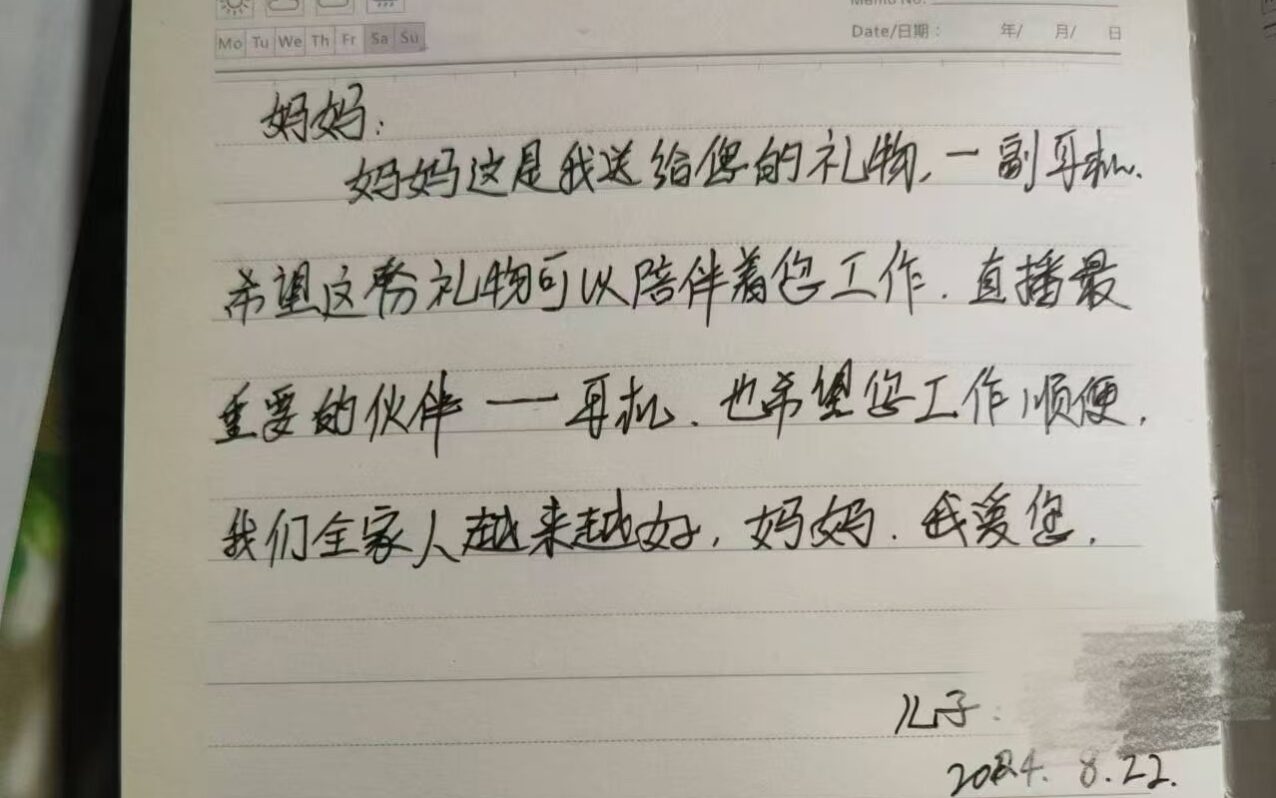 Memo No.
Mo Tu We Th Fr Sa Su
Date/日期： 年/ 月/ 日
妈妈：
妈妈这是我送给您的礼物，一副耳机.
希望这份礼物可以陪伴着您工作.直播最
重要的伙伴——耳机.也希望您工作顺便，
我们全家人越来越好，妈妈.我爱您.
儿子：
2024.8.22.